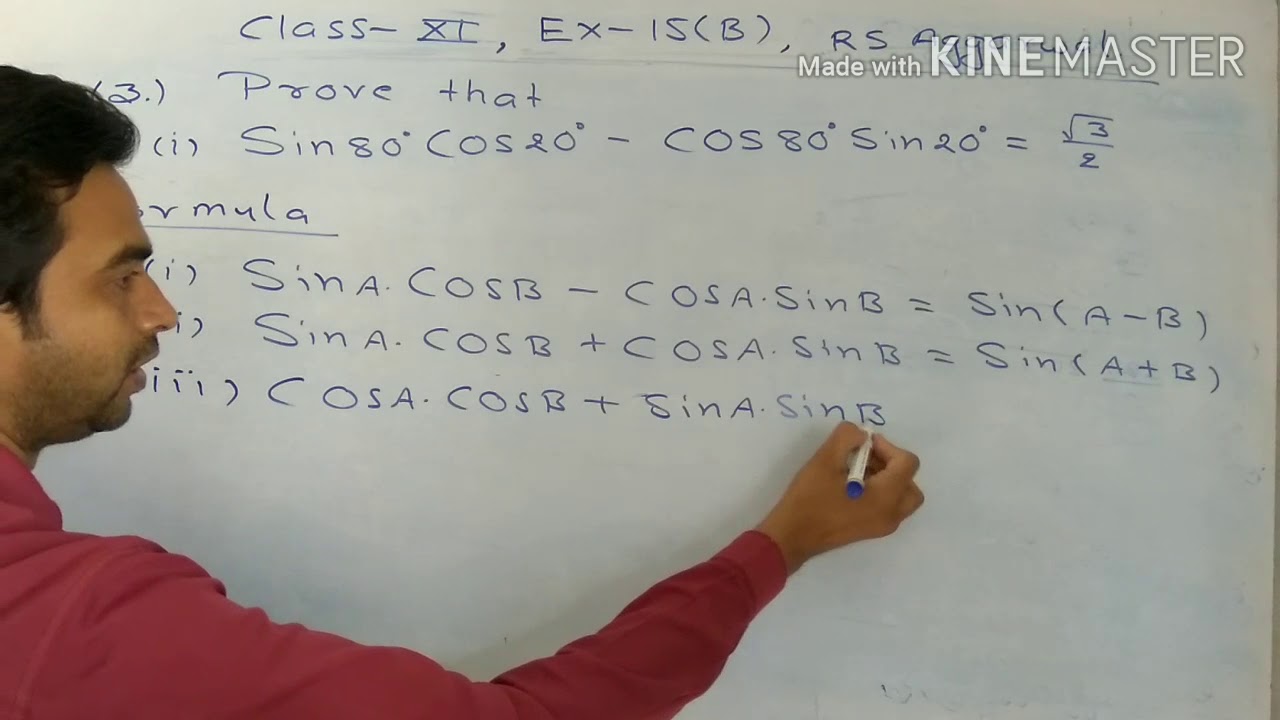 Class-XI, Ex-15(B), RS
Made with KINEMASTER
(3.) Prove that
(i) Sin80° Cos20° - COS80° Sin20° = √3/2
ormula
(i) SinA. COSB - COSA. SinB = Sin(A-B)
i) SinA. COSB + COSA. SinB = Sin(A+B)
iii) COSA. COSB + SinA. SinB